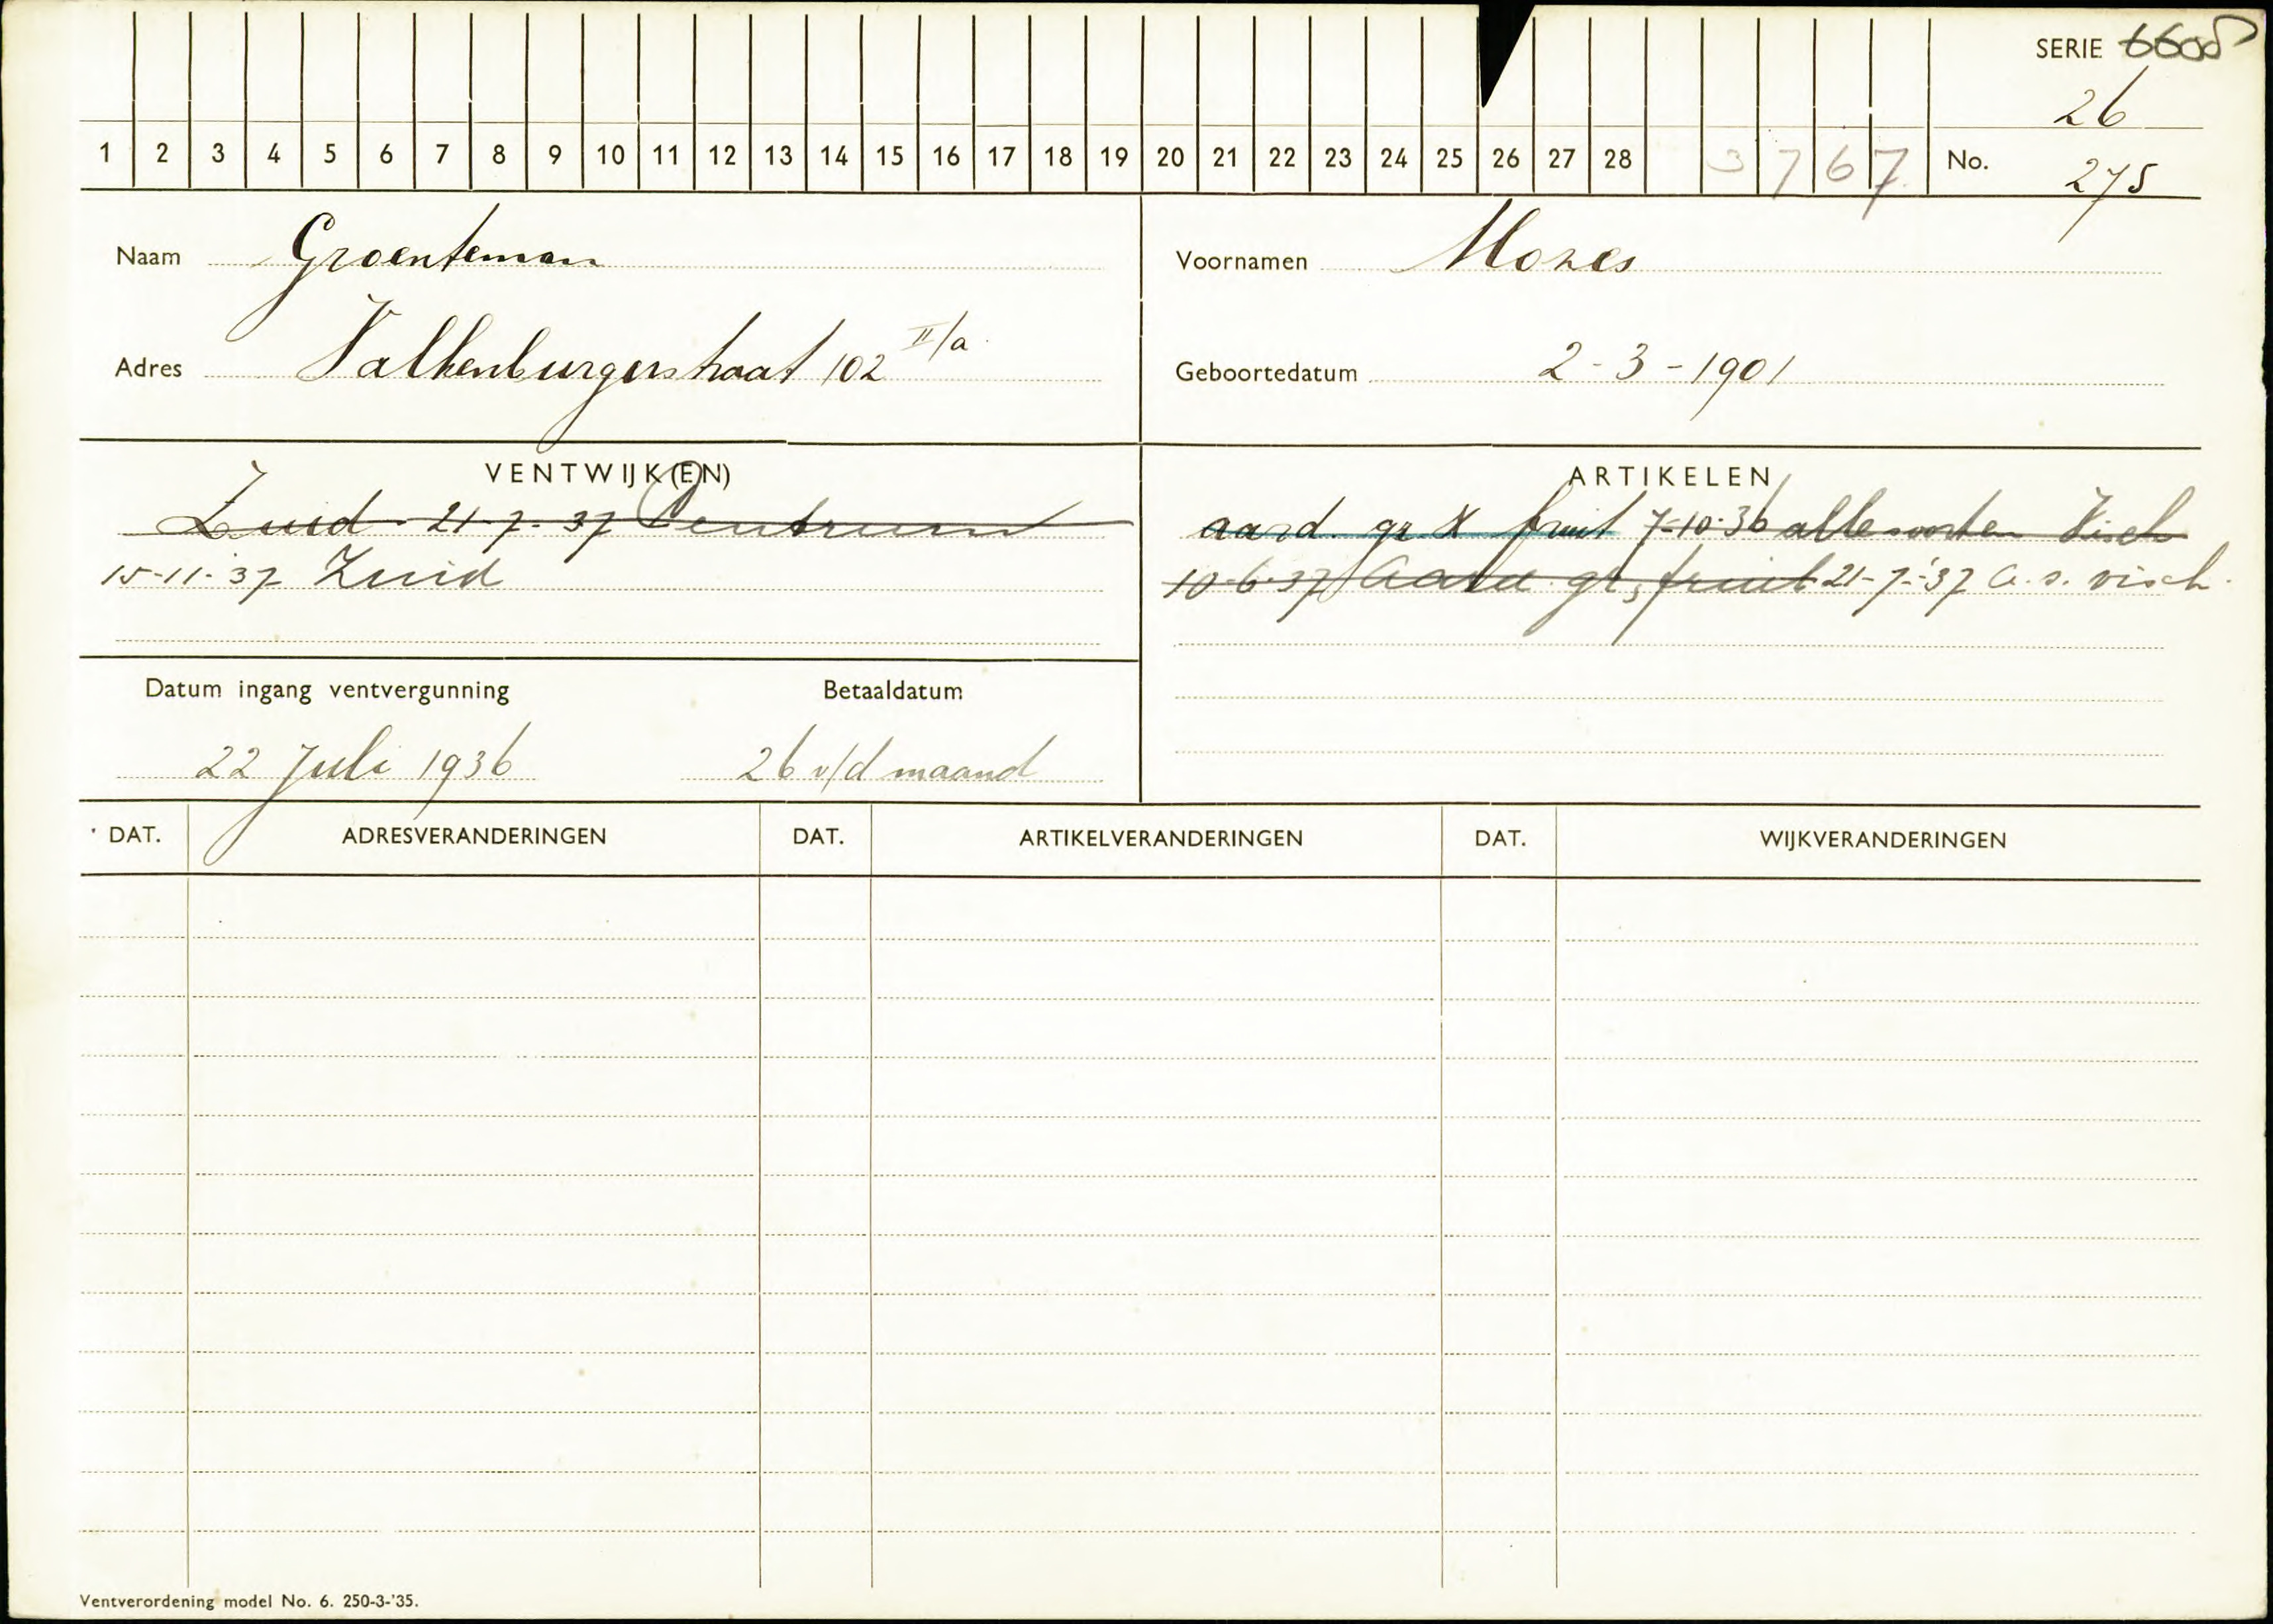 SERIE 6608
26
1 2 3 4 5 6 7 8 9 10 11 12 13 14 15 16 17 18 19 20 21 22 23 24 25 26 27 28 3767 No. 275
Naam Groenteman
Voornamen Mozes
Adres Valkenburgerstraat 102 II/a
Geboortedatum 2-3-1901
VENTWIJK(EN)
Zuid - 21-7-37 Centrum
15-11-37 Zuid
ARTIKELEN
aard. gr. & fruit 7-10-36 alle soorten Visch
10-6-37 Aard. gr, fruit 21-7-'37 a. s. visch.
Datum ingang ventvergunning Betaaldatum
22 Juli 1936 26 v/d maand
DAT. ADRESVERANDERINGEN DAT. ARTIKELVERANDERINGEN DAT. WIJKVERANDERINGEN
Ventverordening model No. 6. 250-3-'35.